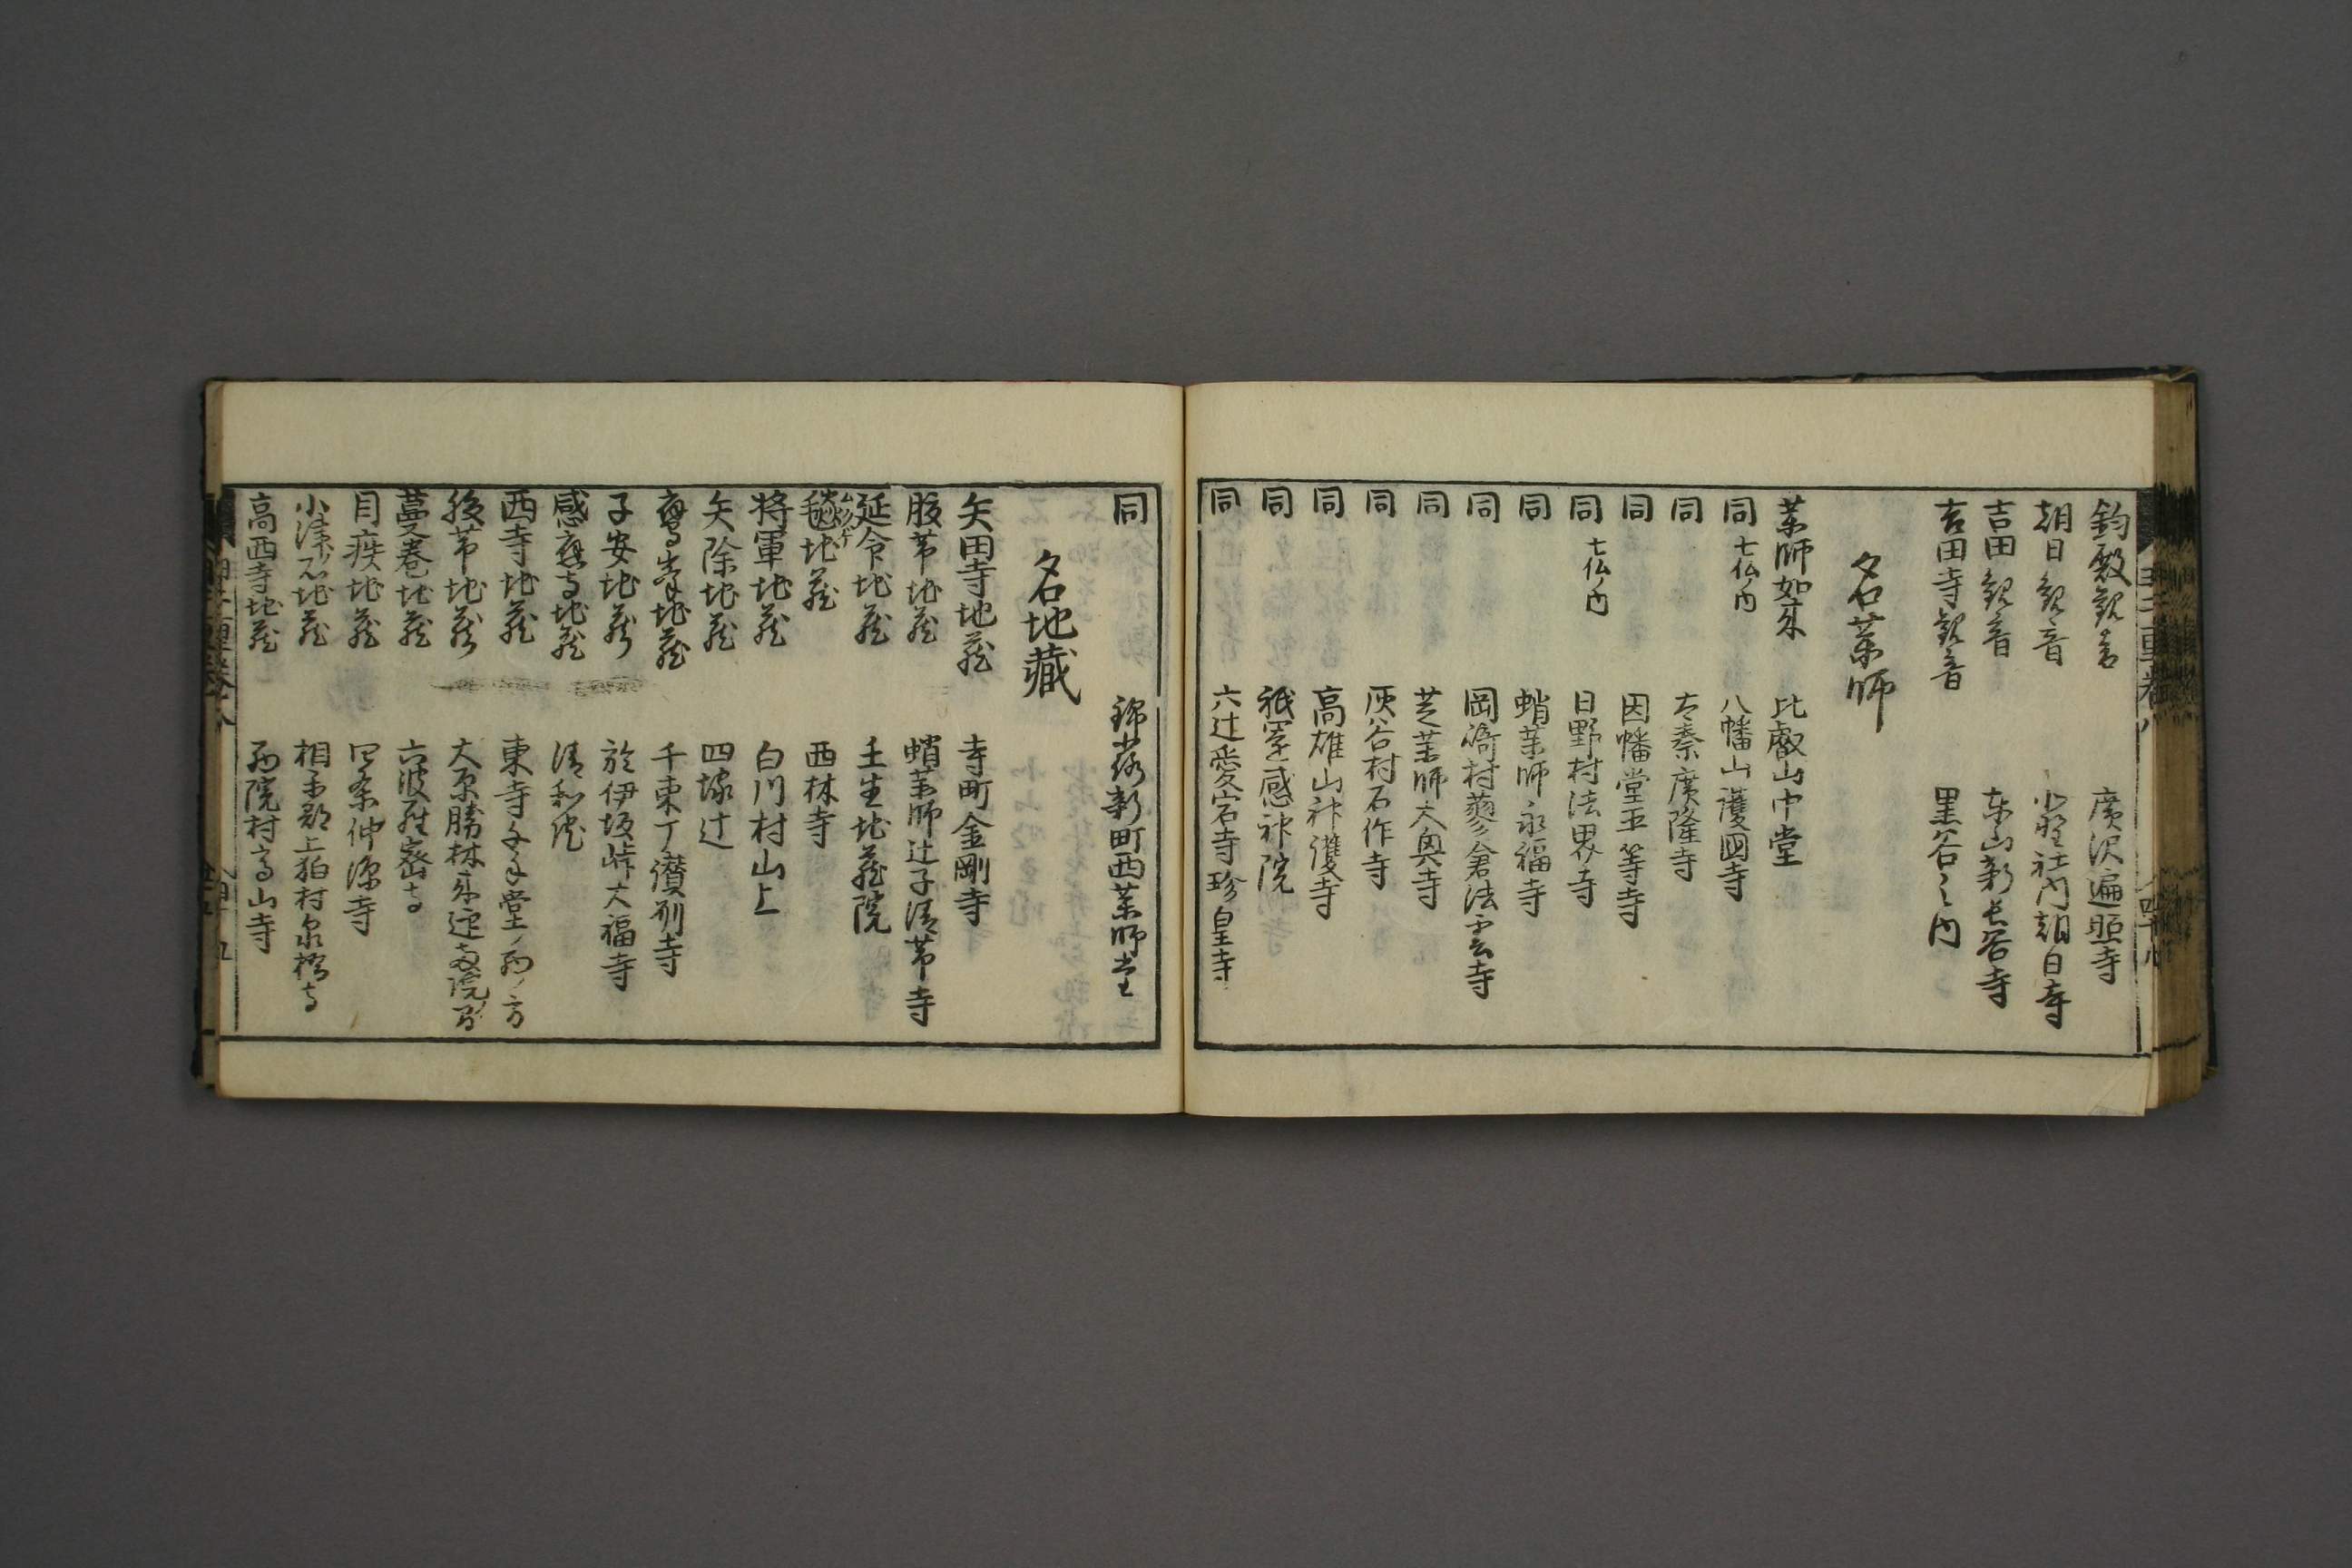 釣殿観音 廣沢遍照寺
朝日観音 小野社内朝日寺
吉田観音 东山新長谷寺
吉田寺観音 黒谷之内
名薬師
薬師如来 比叡山中堂
同 七仏ノ内 八幡山護國寺
同 太秦廣隆寺
同 因幡堂平等寺
同 七仏ノ内 日野村法界寺
同 蛸薬師永福寺
同 岡﨑村蓼倉法雲寺
同 芝薬師大興寺
同 灰谷村石作寺
同 高雄山神護寺
同 祇園感神院
同 六辻愛宕寺珍皇寺
同 錦小路新町西薬師堂
名地藏
矢田寺地蔵 寺町金剛寺
腹帯地蔵 蛸薬師辻子清帯寺
延命地蔵 壬生地蔵院
地蔵 西林寺
将軍地蔵 白川村山上
矢除地蔵 四塚辻
鷲峯地蔵 千束丁讃州寺
子安地蔵 於伊坂峠大福寺
感應寺地蔵 清和院
西寺地蔵 東寺千手堂ノ西ノ方
腹帯地蔵 大原勝林
蔓巻地蔵 六波羅密寺
目疾地蔵 四条仲源寺
地蔵 相楽郡上狛村泉橋寺
高西寺地蔵 西院村高山寺